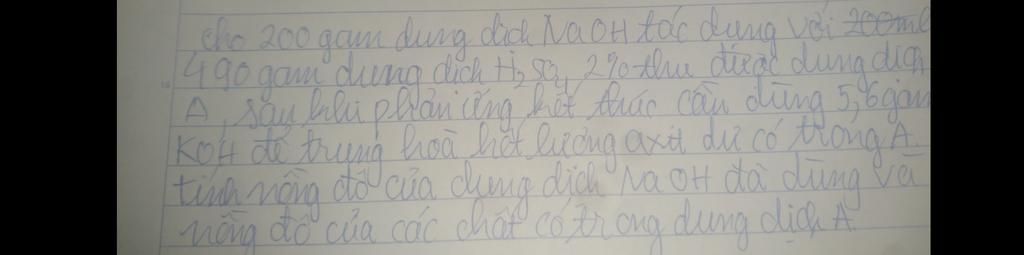 cho 200 gam dung dịch NaOH tác dụng với 200ml
490 gam dung dịch H₂SO₄ 2% thu được dung dịch
A, sau khi phản ứng kết thúc cần dùng 5,6 gam
KOH để trung hoà hết lượng axit dư có trong A.
tính nồng độ của dung dịch NaOH đã dùng và
nồng độ của các chất có trong dung dịch A.